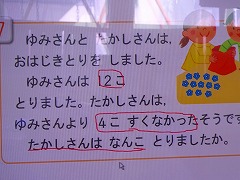 ゆみさんと たかしさんは,
おはじきとりを しました。
ゆみさんは 12こ
とりました。たかしさんは,
ゆみさんより 4こ すくなかったそうで
たかしさんは なんこ とりましたか。